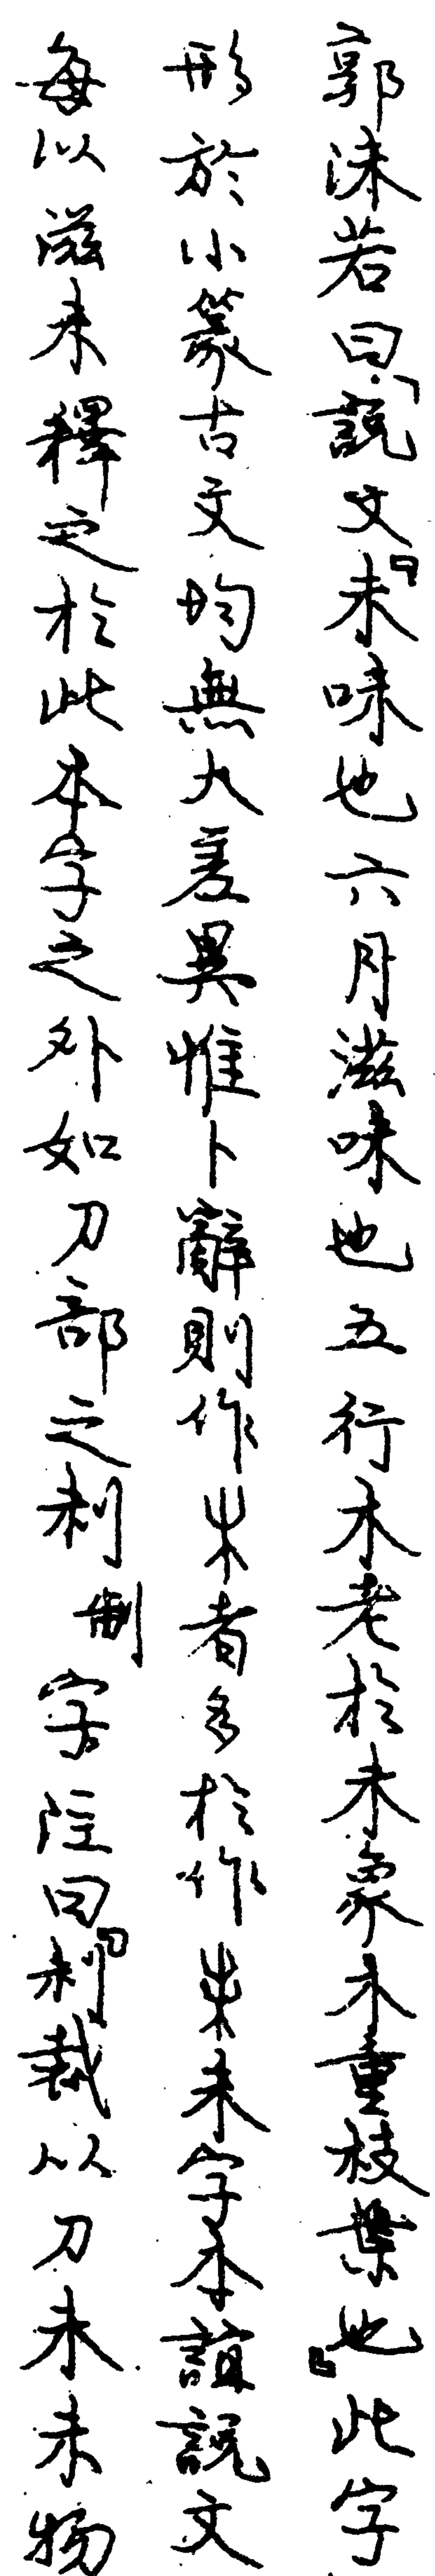 郭沫若曰「說文『未味也六月滋味也五行木老於未象木重枝葉也』此字
形於小篆古文均無大差異惟卜辭則作者多於作未字本誼說文
每以滋未釋之於此本字之外如刀部之利制字註曰『利裁以刀未未物